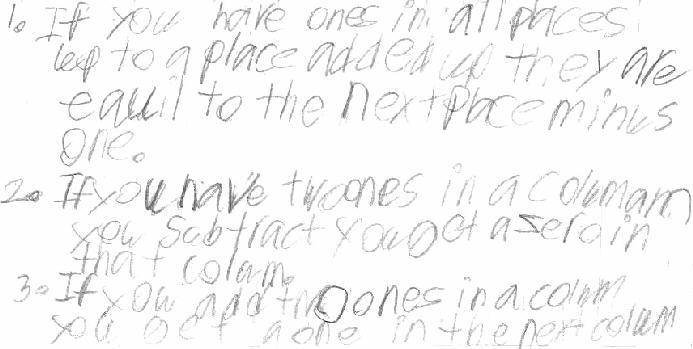 1. If you have ones in all places
up to a place added up they are
equil to the next place minus
one.
2. If you have two ones in a columam
you subtract you get a zero in
that colum.
3. If you add two ones in a colum
you get a one in the next colum